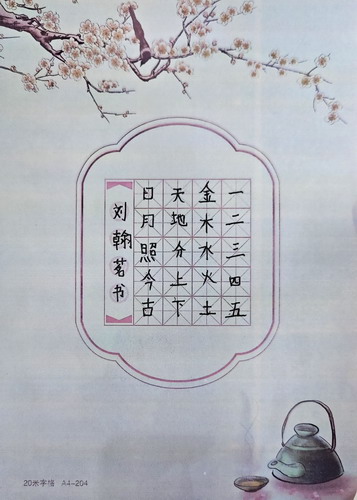 一二三四五
金木水火土
天地分上下
日月照今古
刘翰茗书
20米字格 A4-204